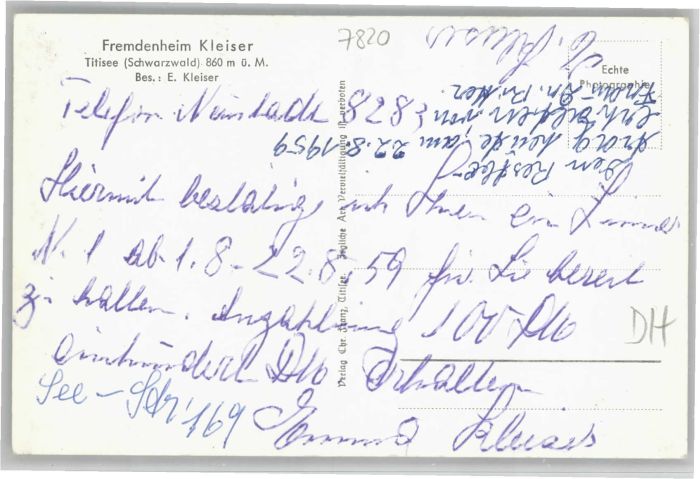 Fremdenheim Kleiser
Titisee (Schwarzwald) 860 m ü. M.
Bes.: E. Kleiser
7820
Echte
Photographie
Telefon Neustadt 8283
Hiermit bestätige ich Ihnen ein Zimmer
N. 1 ab 1.8-22.8.59 für Sie bereit
zu halten. Anzahlung 100 DM
einhundert DM Erhalten
Emma Kleiser
See-Str. 169
Den Restbe-
trag heute, am 22.8.1959
erhalten von
Frau
E. Kleiser
DH
Verlag Chr. Franz, Titisee. Jegliche Art Vervielfältigung ist verboten